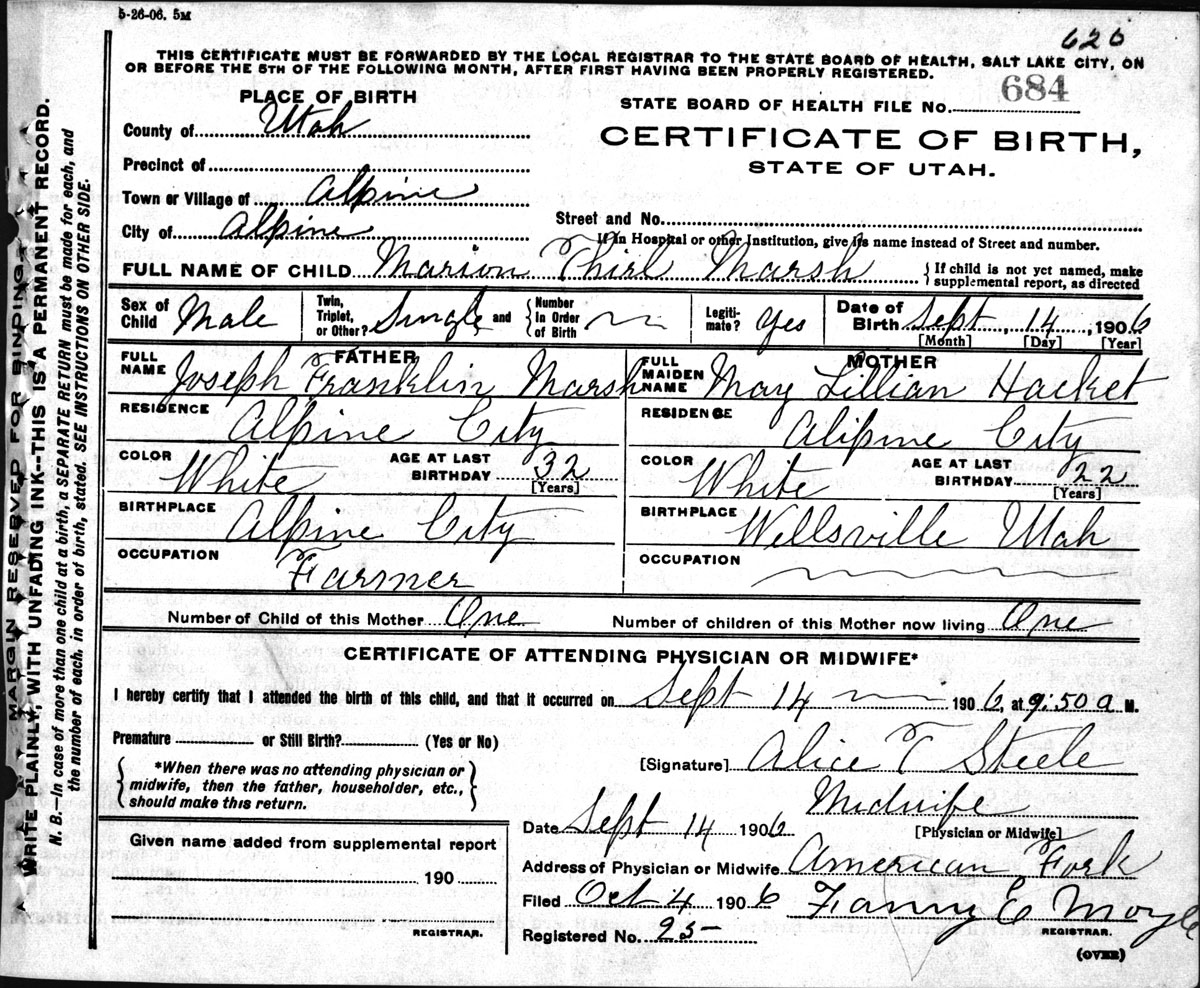 5-26-06. 5M
620
THIS CERTIFICATE MUST BE FORWARDED BY THE LOCAL REGISTRAR TO THE STATE BOARD OF HEALTH, SALT LAKE CITY, ON
OR BEFORE THE 5TH OF THE FOLLOWING MONTH, AFTER FIRST HAVING BEEN PROPERLY REGISTERED.
PLACE OF BIRTH
County of Utah
Precinct of
Town or Village of Alpine
City of Alpine
STATE BOARD OF HEALTH FILE No. 684
CERTIFICATE OF BIRTH,
STATE OF UTAH.
Street and No.
If in Hospital or other Institution, give its name instead of Street and number.
FULL NAME OF CHILD Marion Thirl Marsh { If child is not yet named, make
supplemental report, as directed
Sex of Child Male
Twin, Triplet, or Other? Single and { Number In Order of Birth
Legiti-mate? Yes
Date of Birth Sept, 14, 1906
[Month] [Day] [Year]
FATHER
FULL NAME Joseph Franklin Marsh
RESIDENCE Alpine City
COLOR White AGE AT LAST BIRTHDAY 32
[Years]
BIRTHPLACE Alpine City
OCCUPATION Farmer
MOTHER
FULL MAIDEN NAME May Lillian Hacket
RESIDENCE Alipine City
COLOR White AGE AT LAST BIRTHDAY 22
[Years]
BIRTHPLACE Wellsville Utah
OCCUPATION
Number of Child of this Mother One Number of children of this Mother now living One
CERTIFICATE OF ATTENDING PHYSICIAN OR MIDWIFE*
I hereby certify that I attended the birth of this child, and that it occurred on Sept 14 1906, at 9:50 a M.
Premature or Still Birth? (Yes or No)
*When there was no attending physician or
midwife, then the father, householder, etc.,
should make this return.
[Signature] Alice T Steele
Midwife
Date Sept 14 1906 [Physician or Midwife]
Address of Physician or Midwife American Fork
Filed Oct 4 1906 Fanny E Moyle
REGISTRAR.
Registered No. 25
(OVER)
Given name added from supplemental report
190
REGISTRAR.
MARGIN RESERVED FOR BINDING
WRITE PLAINLY, WITH UNFADING INK--THIS IS A PERMANENT RECORD.
N. B.—In case of more than one child at a birth, a SEPARATE RETURN must be made for each, and
the number of each, in order of birth, stated. SEE INSTRUCTIONS ON OTHER SIDE.